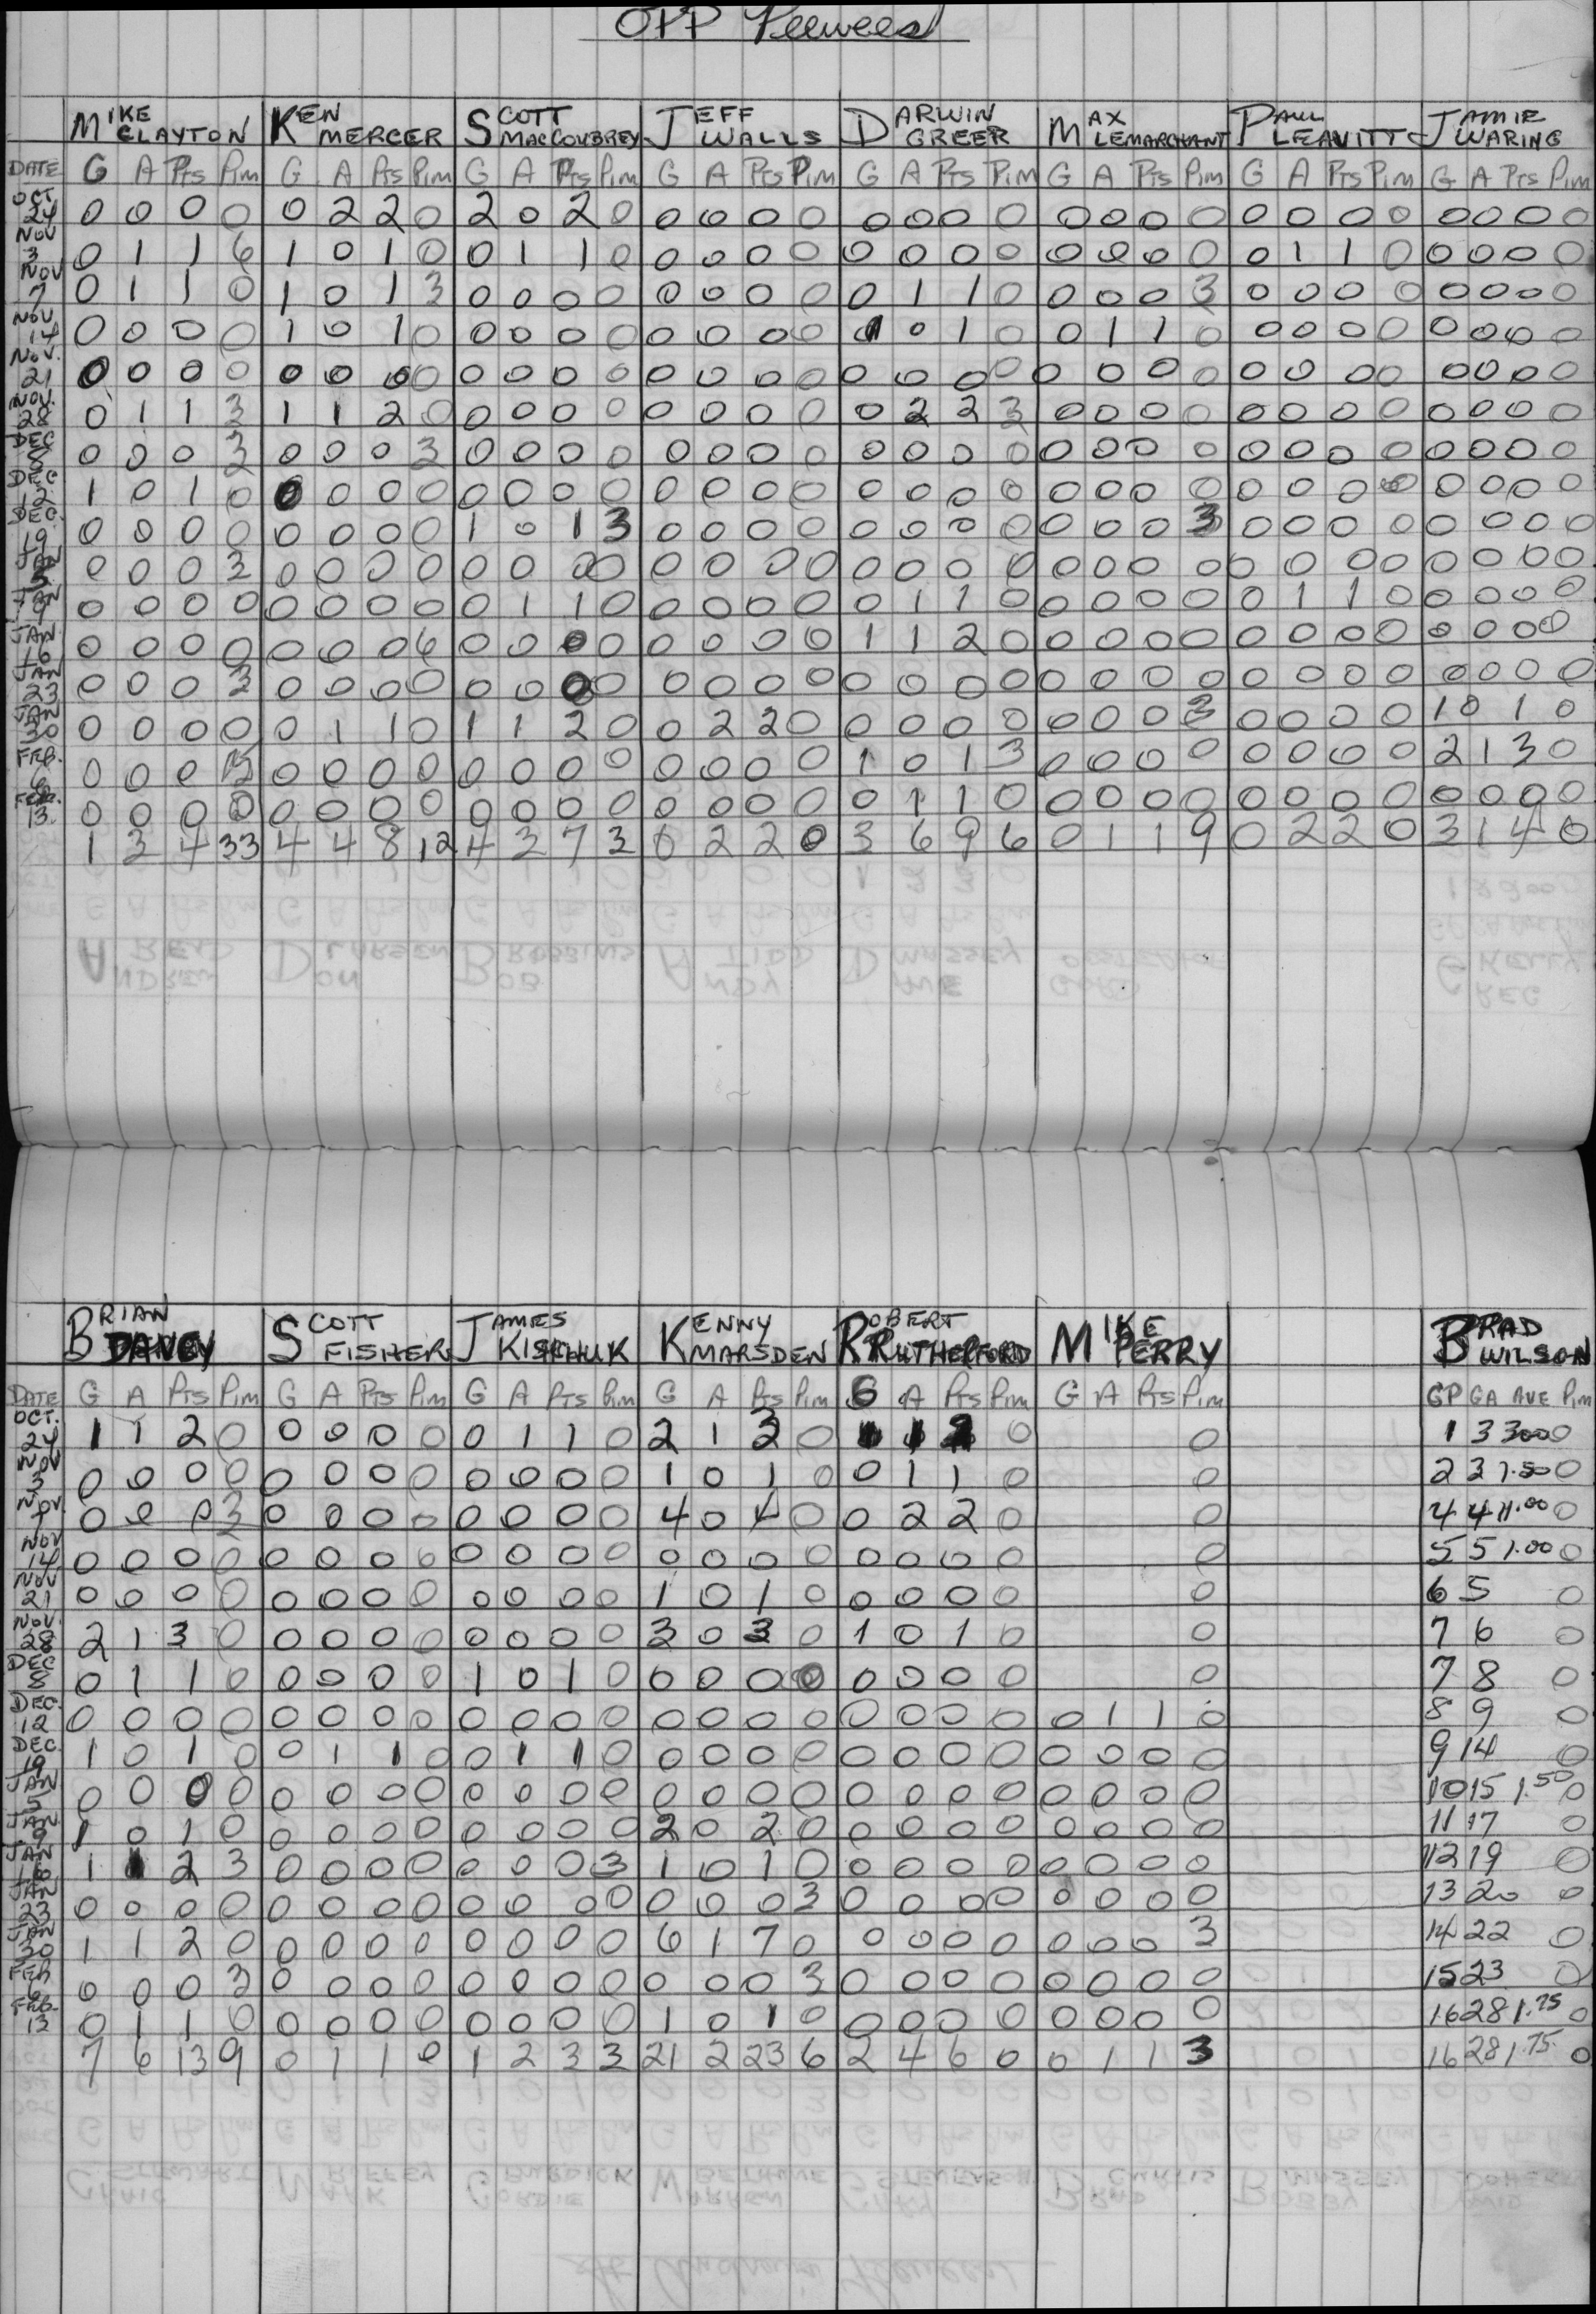 OPP Peewees
MIKE CLAYTON KEN MERCER SCOTT MACCOUBREY JEFF WALLS DARWIN GREER MAX LEMARCHANT PAUL LEAVITT JAMIE WARING
DATE G A Pts Pim G A Pts Pim G A Pts Pim G A Pts Pim G A Pts Pim G A Pts Pim G A Pts Pim G A Pts Pim
OCT 24 0 0 0 0 0 2 2 0 2 0 2 0 0 0 0 0 0 0 0 0 0 0 0 0 0 0 0 0 0 0 0 0
NOV 3 0 1 1 6 1 0 1 0 0 1 1 0 0 0 0 0 0 0 0 0 0 0 0 0 0 1 1 0 0 0 0 0
NOV 7 0 1 1 0 1 0 1 3 0 0 0 0 0 0 0 0 0 1 1 0 0 0 0 3 0 0 0 0 0 0 0 0
NOV 14 0 0 0 0 1 0 1 0 0 0 0 0 0 0 0 0 1 0 1 0 0 1 1 0 0 0 0 0 0 0 0 0
NOV. 21 0 0 0 0 0 0 0 0 0 0 0 0 0 0 0 0 0 0 0 0 0 0 0 0 0 0 0 0 0 0 0 0
NOV. 28 0 1 1 3 1 1 2 0 0 0 0 0 0 0 0 0 0 2 2 3 0 0 0 0 0 0 0 0 0 0 0 0
DEC 5 0 0 0 3 0 0 0 3 0 0 0 0 0 0 0 0 0 0 0 0 0 0 0 0 0 0 0 0 0 0 0 0
DEC 12 1 0 1 0 0 0 0 0 0 0 0 0 0 0 0 0 0 0 0 0 0 0 0 0 0 0 0 0 0 0 0 0
DEC. 19 0 0 0 0 0 0 0 0 1 0 1 3 0 0 0 0 0 0 0 0 0 0 0 3 0 0 0 0 0 0 0 0
JAN 5 0 0 0 3 0 0 0 0 0 0 0 0 0 0 0 0 0 0 0 0 0 0 0 0 0 0 0 0 0 0 0 0
JAN 9 0 0 0 0 0 0 0 0 0 1 1 0 0 0 0 0 0 1 1 0 0 0 0 0 0 1 1 0 0 0 0 0
JAN 16 0 0 0 0 0 0 0 6 0 0 0 0 0 0 0 0 1 1 2 0 0 0 0 0 0 0 0 0 0 0 0 0
JAN 23 0 0 0 3 0 0 0 0 0 0 0 0 0 0 0 0 0 0 0 0 0 0 0 0 0 0 0 0 0 0 0 0
JAN 30 0 0 0 0 0 1 1 0 1 1 2 0 0 2 2 0 0 0 0 0 0 0 0 3 0 0 0 0 1 0 1 0
FEB. 6 0 0 0 15 0 0 0 0 0 0 0 0 0 0 0 0 1 0 1 3 0 0 0 0 0 0 0 0 2 1 3 0
FEB. 13. 0 0 0 0 0 0 0 0 0 0 0 0 0 0 0 0 0 1 1 0 0 0 0 0 0 0 0 0 0 0 0 0
1 3 4 33 4 4 8 12 4 3 7 3 0 2 2 0 3 6 9 6 0 1 1 9 0 2 2 0 3 1 4 0
BRIAN DAVEY SCOTT FISHER JAMES KISHCHUK KENNY MARSDEN ROBERT RUTHERFORD MIKE PERRY BRAD WILSON
DATE G A Pts Pim G A Pts Pim G A Pts Pim G A Pts Pim G A Pts Pim G A Pts Pim GP GA AVE Pim
OCT. 24 1 1 2 0 0 0 0 0 0 1 1 0 2 1 3 0 1 1 2 0 0 1 3 3.00 0
NOV 3 0 0 0 0 0 0 0 0 0 0 0 0 1 0 1 0 0 1 1 0 0 2 3 1.50 0
NOV. 7 0 0 0 3 0 0 0 0 0 0 0 0 4 0 4 0 0 2 2 0 0 4 4 1.00 0
NOV 14 0 0 0 0 0 0 0 0 0 0 0 0 0 0 0 0 0 0 0 0 0 5 5 1.00 0
NOV 21 0 0 0 0 0 0 0 0 0 0 0 0 1 0 1 0 0 0 0 0 0 6 5 0
NOV. 28 2 1 3 0 0 0 0 0 0 0 0 0 3 0 3 0 1 0 1 0 0 7 6 0
DEC 5 0 1 1 0 0 0 0 0 1 0 1 0 0 0 0 0 0 0 0 0 0 7 8 0
DEC. 12 0 0 0 0 0 0 0 0 0 0 0 0 0 0 0 0 0 0 0 0 0 1 1 0 8 9 0
DEC. 19 1 0 1 0 0 1 1 0 0 1 1 0 0 0 0 0 0 0 0 0 0 0 0 0 9 14 0
JAN 5 0 0 0 0 0 0 0 0 0 0 0 0 0 0 0 0 0 0 0 0 0 0 0 0 10 15 1.50 0
JAN 9 1 0 1 0 0 0 0 0 0 0 0 0 2 0 2 0 0 0 0 0 0 0 0 0 11 17 0
JAN 16 1 1 2 3 0 0 0 0 0 0 0 3 1 0 1 0 0 0 0 0 0 0 0 0 12 19 0
JAN 23 0 0 0 0 0 0 0 0 0 0 0 0 0 0 0 3 0 0 0 0 0 0 0 0 13 20 0
JAN 30 1 1 2 0 0 0 0 0 0 0 0 0 6 1 7 0 0 0 0 0 0 0 0 3 14 22 0
FEB 6 0 0 0 3 0 0 0 0 0 0 0 0 0 0 0 3 0 0 0 0 0 0 0 0 15 23 0
FEB. 13 0 1 1 0 0 0 0 0 0 0 0 0 1 0 1 0 0 0 0 0 0 0 0 0 16 28 1.75 0
7 6 13 9 0 1 1 0 1 2 3 3 21 2 23 6 2 4 6 0 0 1 1 3 16 28 1.75 0